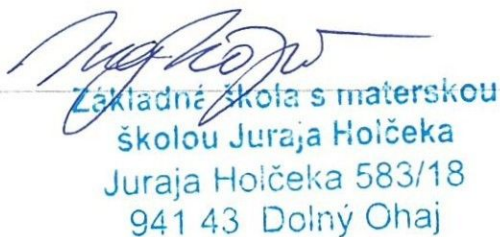 Základná škola s materskou
školou Juraja Holčeka
Juraja Holčeka 583/18
941 43 Dolný Ohaj